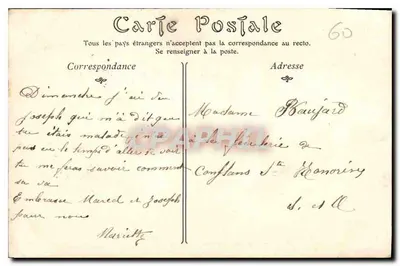 Carte Postale
Tous les pays étrangers n'acceptent pas la correspondance au recto.
Se renseigner à la poste.
60
Correspondance
Dimanche j'ai vu
Joseph qui m'a dit que
tu étais malade
pas eu le temps d'aller te voir
tu me feras savoir comment
sa va
Embrasse Marcel et Joseph
pour nous
Mariette
Adresse
Madame
Conflans Ste Honorine
S. et O